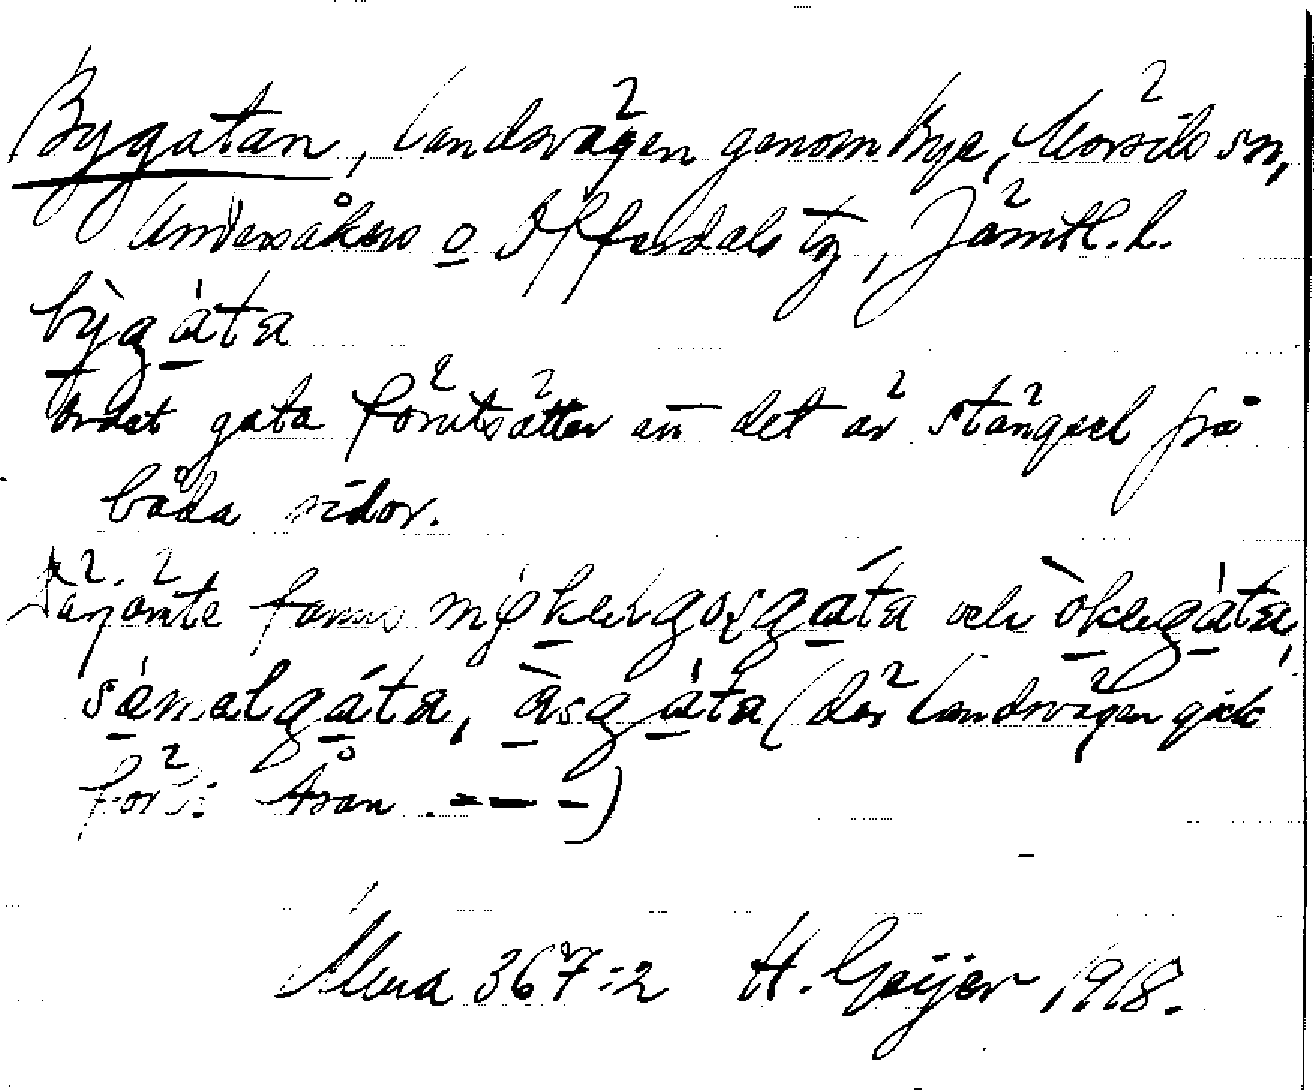 Bygatan, landsvägen genom Bye, Mörsils sn,
Undersåkers o Offerdals tg, Jämtl. l.
bỳgáta
Ordet gata förutsätter att det är stängsel från
båda sidor.
Därjämte fanns gáta och òkergáta,
sámalgáta, àsgáta (där landsvägen gick
förbi Åsan . - - - -)
Ulma 367:2 H. Geijer 1918.